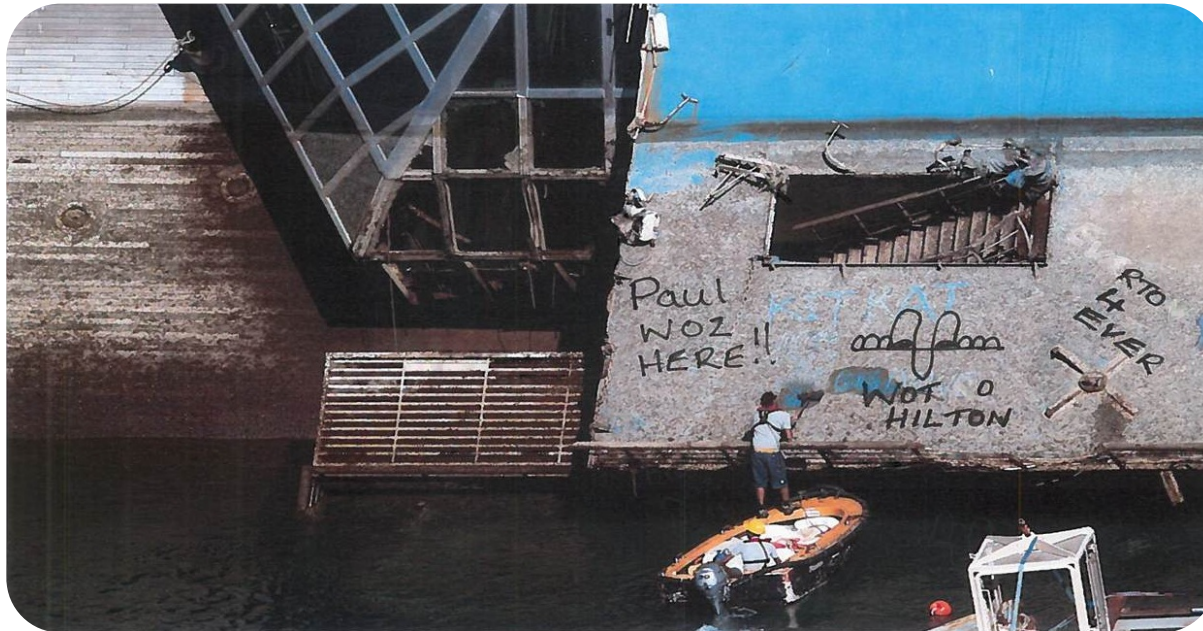 Paul
WOZ
HERE!!
KIT KAT
WOT O
HILTON
RTO
4
EVER